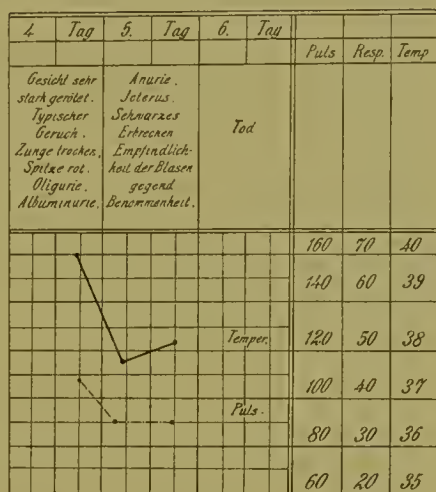 4 Tag 5. Tag 6. Tag
Puls Resp. Temp
Gesicht sehr
stark gerötet.
Typischer
Geruch.
Zunge trocken,
Spitze rot.
Oligurie.
Albuminurie.
Anurie.
Icterus.
Schwarzes
Erbrechen
Empfindlich-
keit der Blasen
gegend
Benommenheit.
Tod
160 70 40
140 60 39
Temper. 120 50 38
100 40 37
Puls.
80 30 36
60 20 35